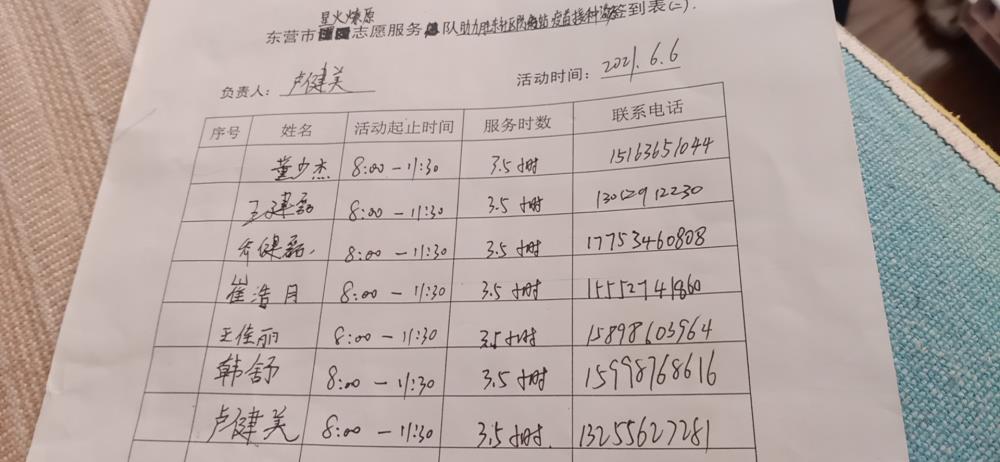 星火燎原
东营市志愿服务队助力胜东社区防角站疫苗接种签到表(二).
负责人: 卢健美 活动时间: 2021.6.6
序号 姓名 活动起止时间 服务时数 联系电话
董少杰 8:00-11:30 3.5小时 15163651044
王建磊 8:00-11:30 3.5小时 13012912230
乔健磊. 8:00-11:30 3.5小时 17753460808
崔浩月 8:00-11:30 3.5小时 15552741860
王佳丽 8:00-11:30 3.5小时 15898603964
韩舒 8:00-11:30 3.5小时 15998768616
卢健美 8:00-11:30 3.5小时. 13255627281